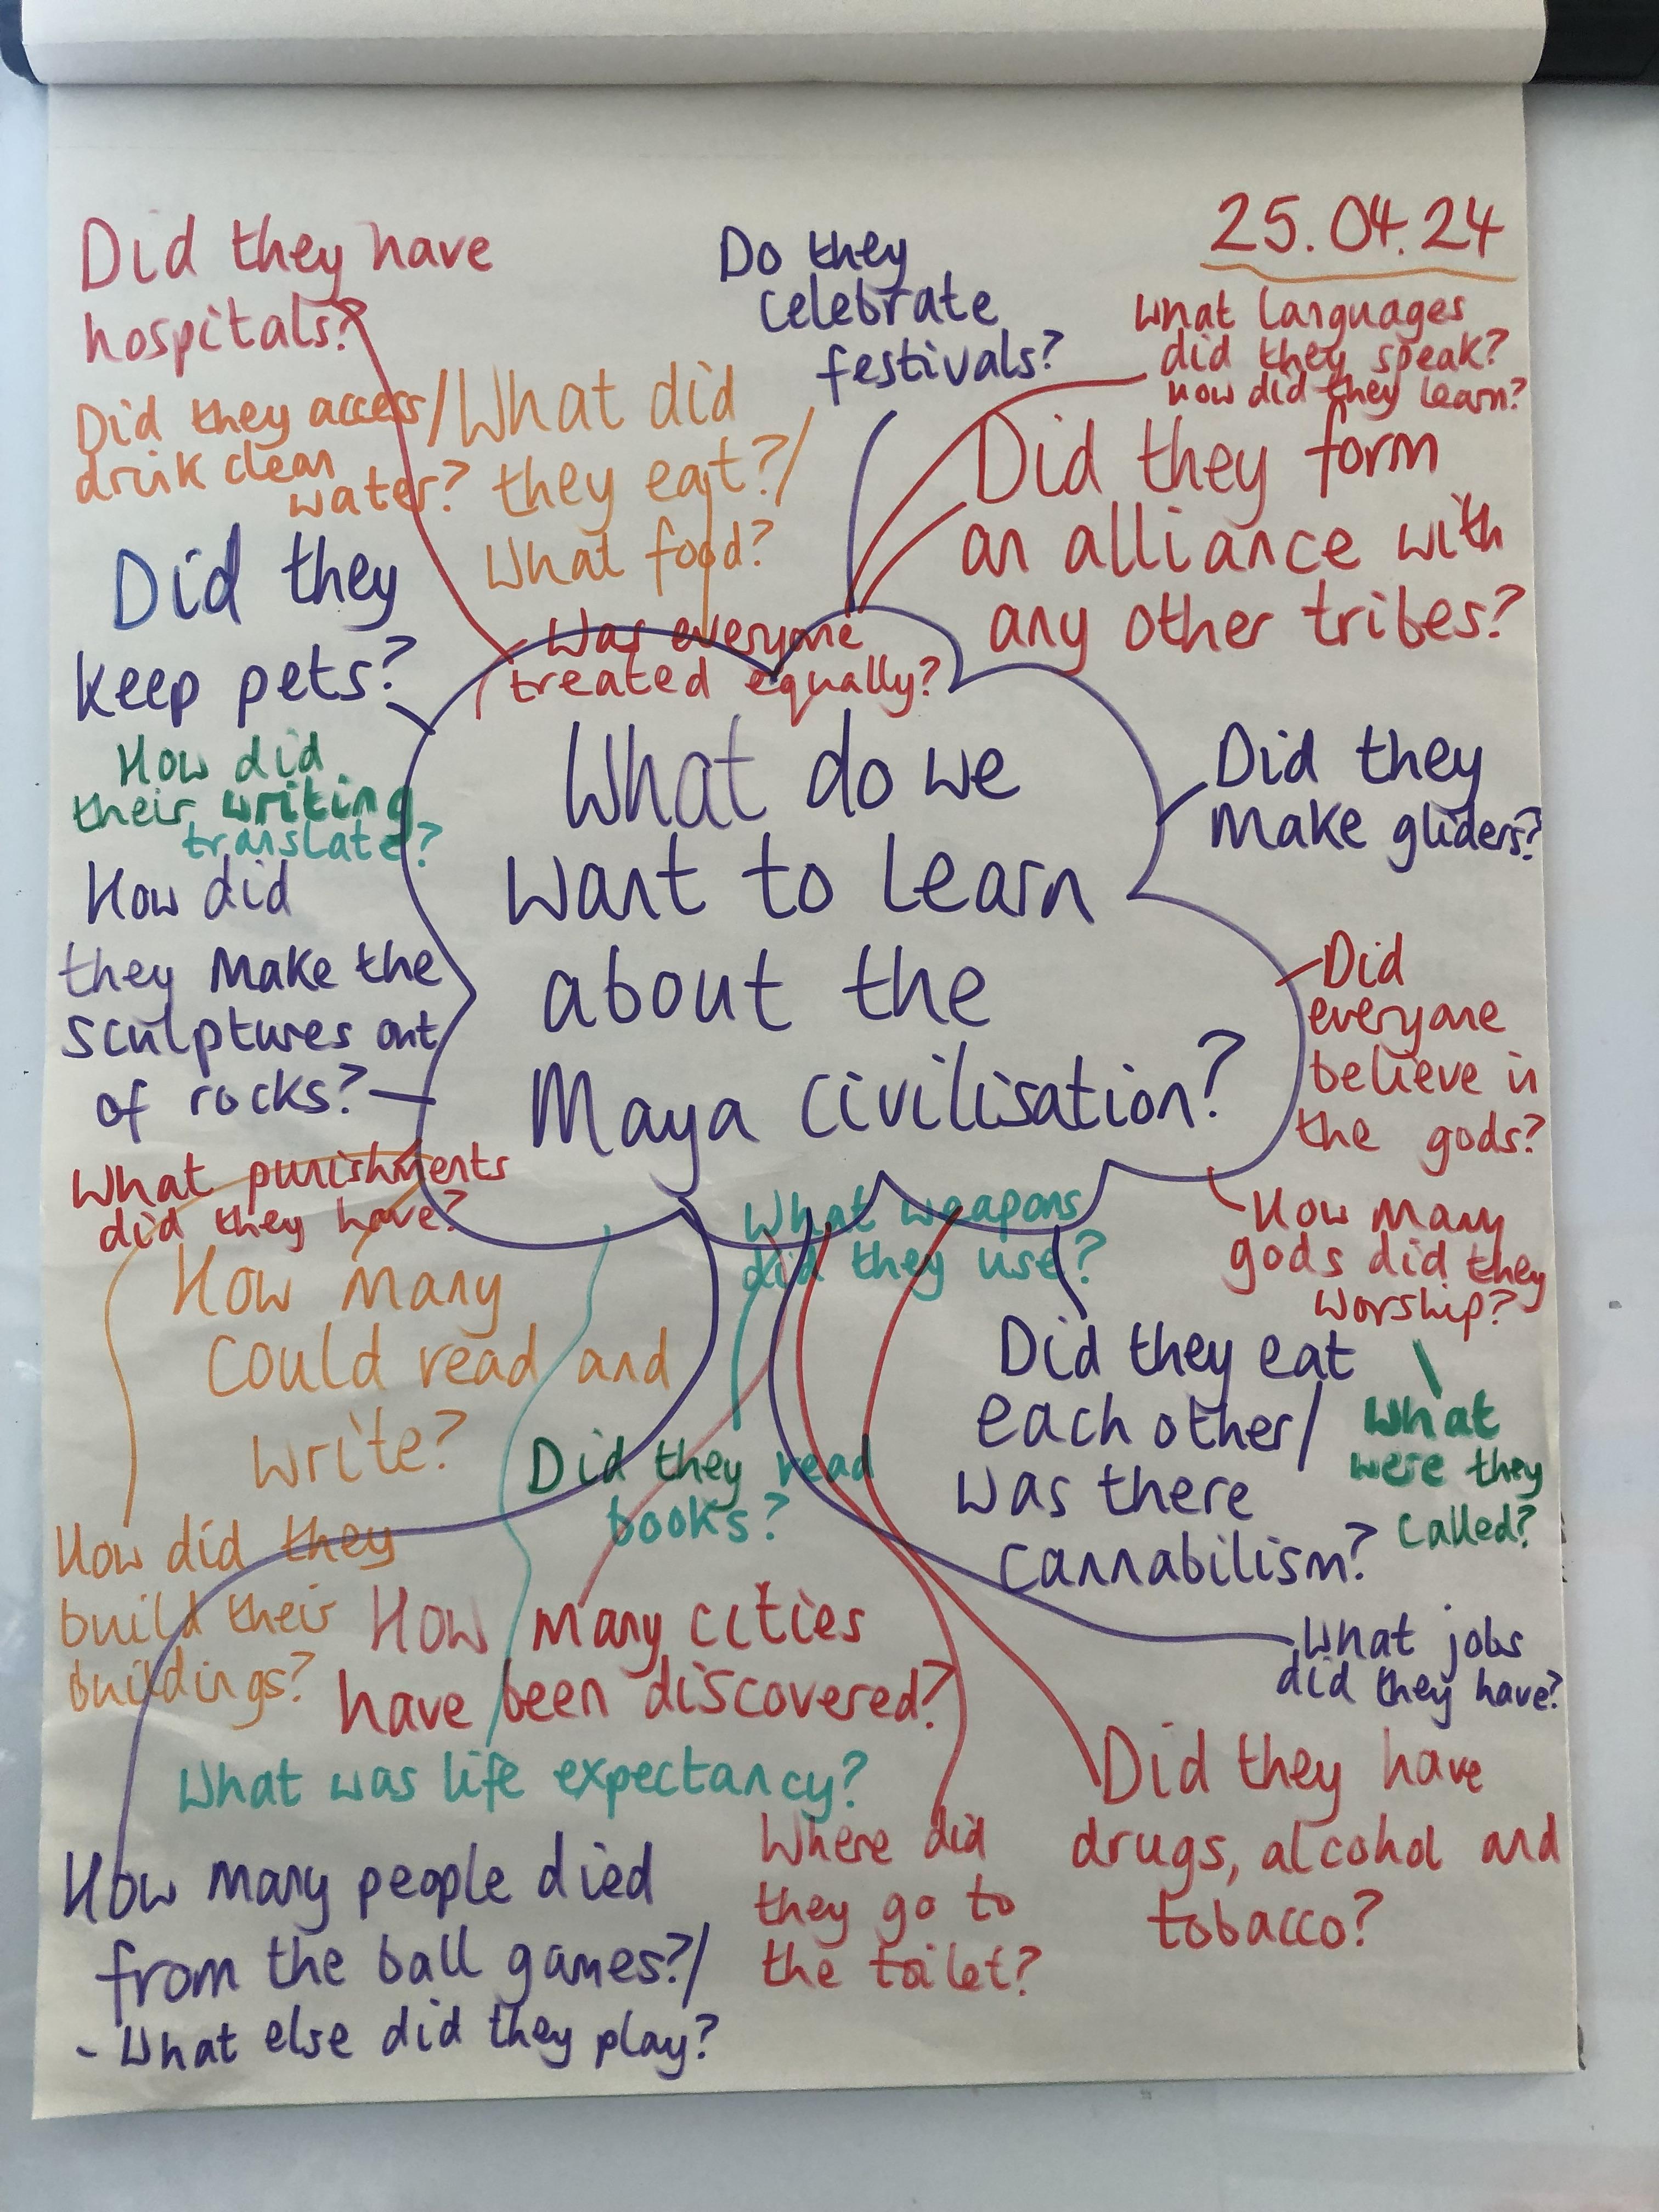 25.04.24
Did they have
hospitals?
Do they
celebrate
festivals?
What languages
did they speak?
How did they learn?
Did they access/
drink clean
water?
What did
they eat?/
What food?
Did they form
an alliance with
any other tribes?
Did they
keep pets?
Was everyone
treated equally?
How did
their writing
translate?
What do we
want to learn
about the
Maya civilisation?
Did they
make gliders?
How did
they make the
sculptures out
of rocks?
Did
everyone
believe in
the gods?
What punishments
did they have?
What weapons
did they use?
How many
gods did they
worship?
What
were they
called?
How many
could read and
write?
Did they read
books?
Did they eat
each other/
was there
cannabilism?
How did they
build their
buildings?
How many cities
have been discovered?
What jobs
did they have?
What was life expectancy?
Where did
they go to
the toilet?
Did they have
drugs, alcohol and
tobacco?
How many people died
from the ball games?/
- What else did they play?